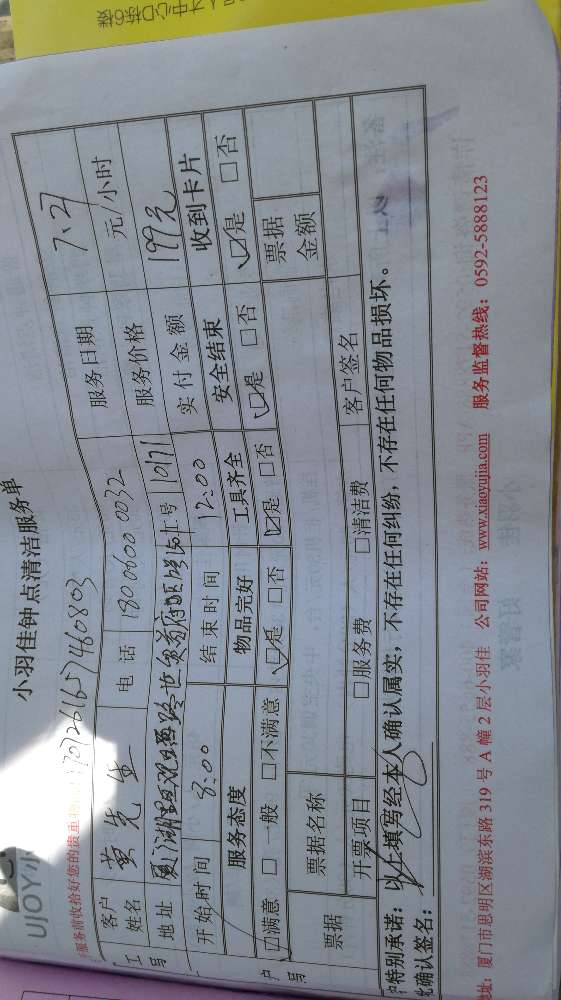 小羽佳钟点清洁服务单
UJOY小
服务前收拾好您的贵重
客户姓名 黄先生 电话 18006000032 服务日期 7.27
地址 服务价格 元/小时
工号 10171 实付金额 199元
开始时间 8:00 结束时间 12:00
服务态度 物品完好 工具齐全 安全结束 收到卡片
☑满意 □一般 □不满意 ☑是 □否 ☑是 □否 ☑是 □否 ☑是 □否
票据 票据名称 票据金额
开票项目 □服务费 □清洁费 客户签名
特别承诺:以上填写经本人确认属实,不存在任何纠纷,不存在任何物品损坏。
确认签名:
址:厦门市思明区湖滨东路 319 号 A 幢 2 层小羽佳 公司网站:www.xiaoyujia.com 服务监督热线:0592-5888123